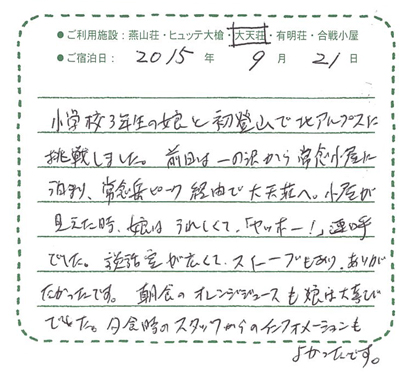 ●ご利用施設：燕山荘・ヒュッテ大槍・大天荘・有明荘・合戦小屋
●ご宿泊日： 2015 年 9 月 21 日
小学校3年生の娘と初登山で北アルプスに
挑戦しました。前日は一の沢から常念小屋に
泊まり、常念岳ピーク経由で大天荘へ。小屋が
見えた時、娘はうれしくて、「ヤッホー！」連呼
でした。談話室が広くて、ストーブもあり、ありが
たかったです。朝食のオレンジジュースも娘は大喜び
でした。夕食時のスタッフからのインフォメーションも
よかったです。